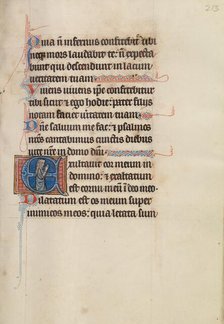 213
Quia non infernus confitebitur tibi
neq; mors laudabit te: non expecta
bunt qui descendunt in lacum
ueritatem tuam
Viuens uiuens ipse confitebitur
tibi sicut et ego hodie: pater filiis
notam faciet ueritatem tuam
Dne saluum me fac: et psalmos
nros cantabimus cunctis diebus
uite nre in domo dni
Exultauit cor meum in
domino: et exaltatum
est cornu meum in deo meo
Dilatatum est os meum super
inimicos meos: quia letata sum